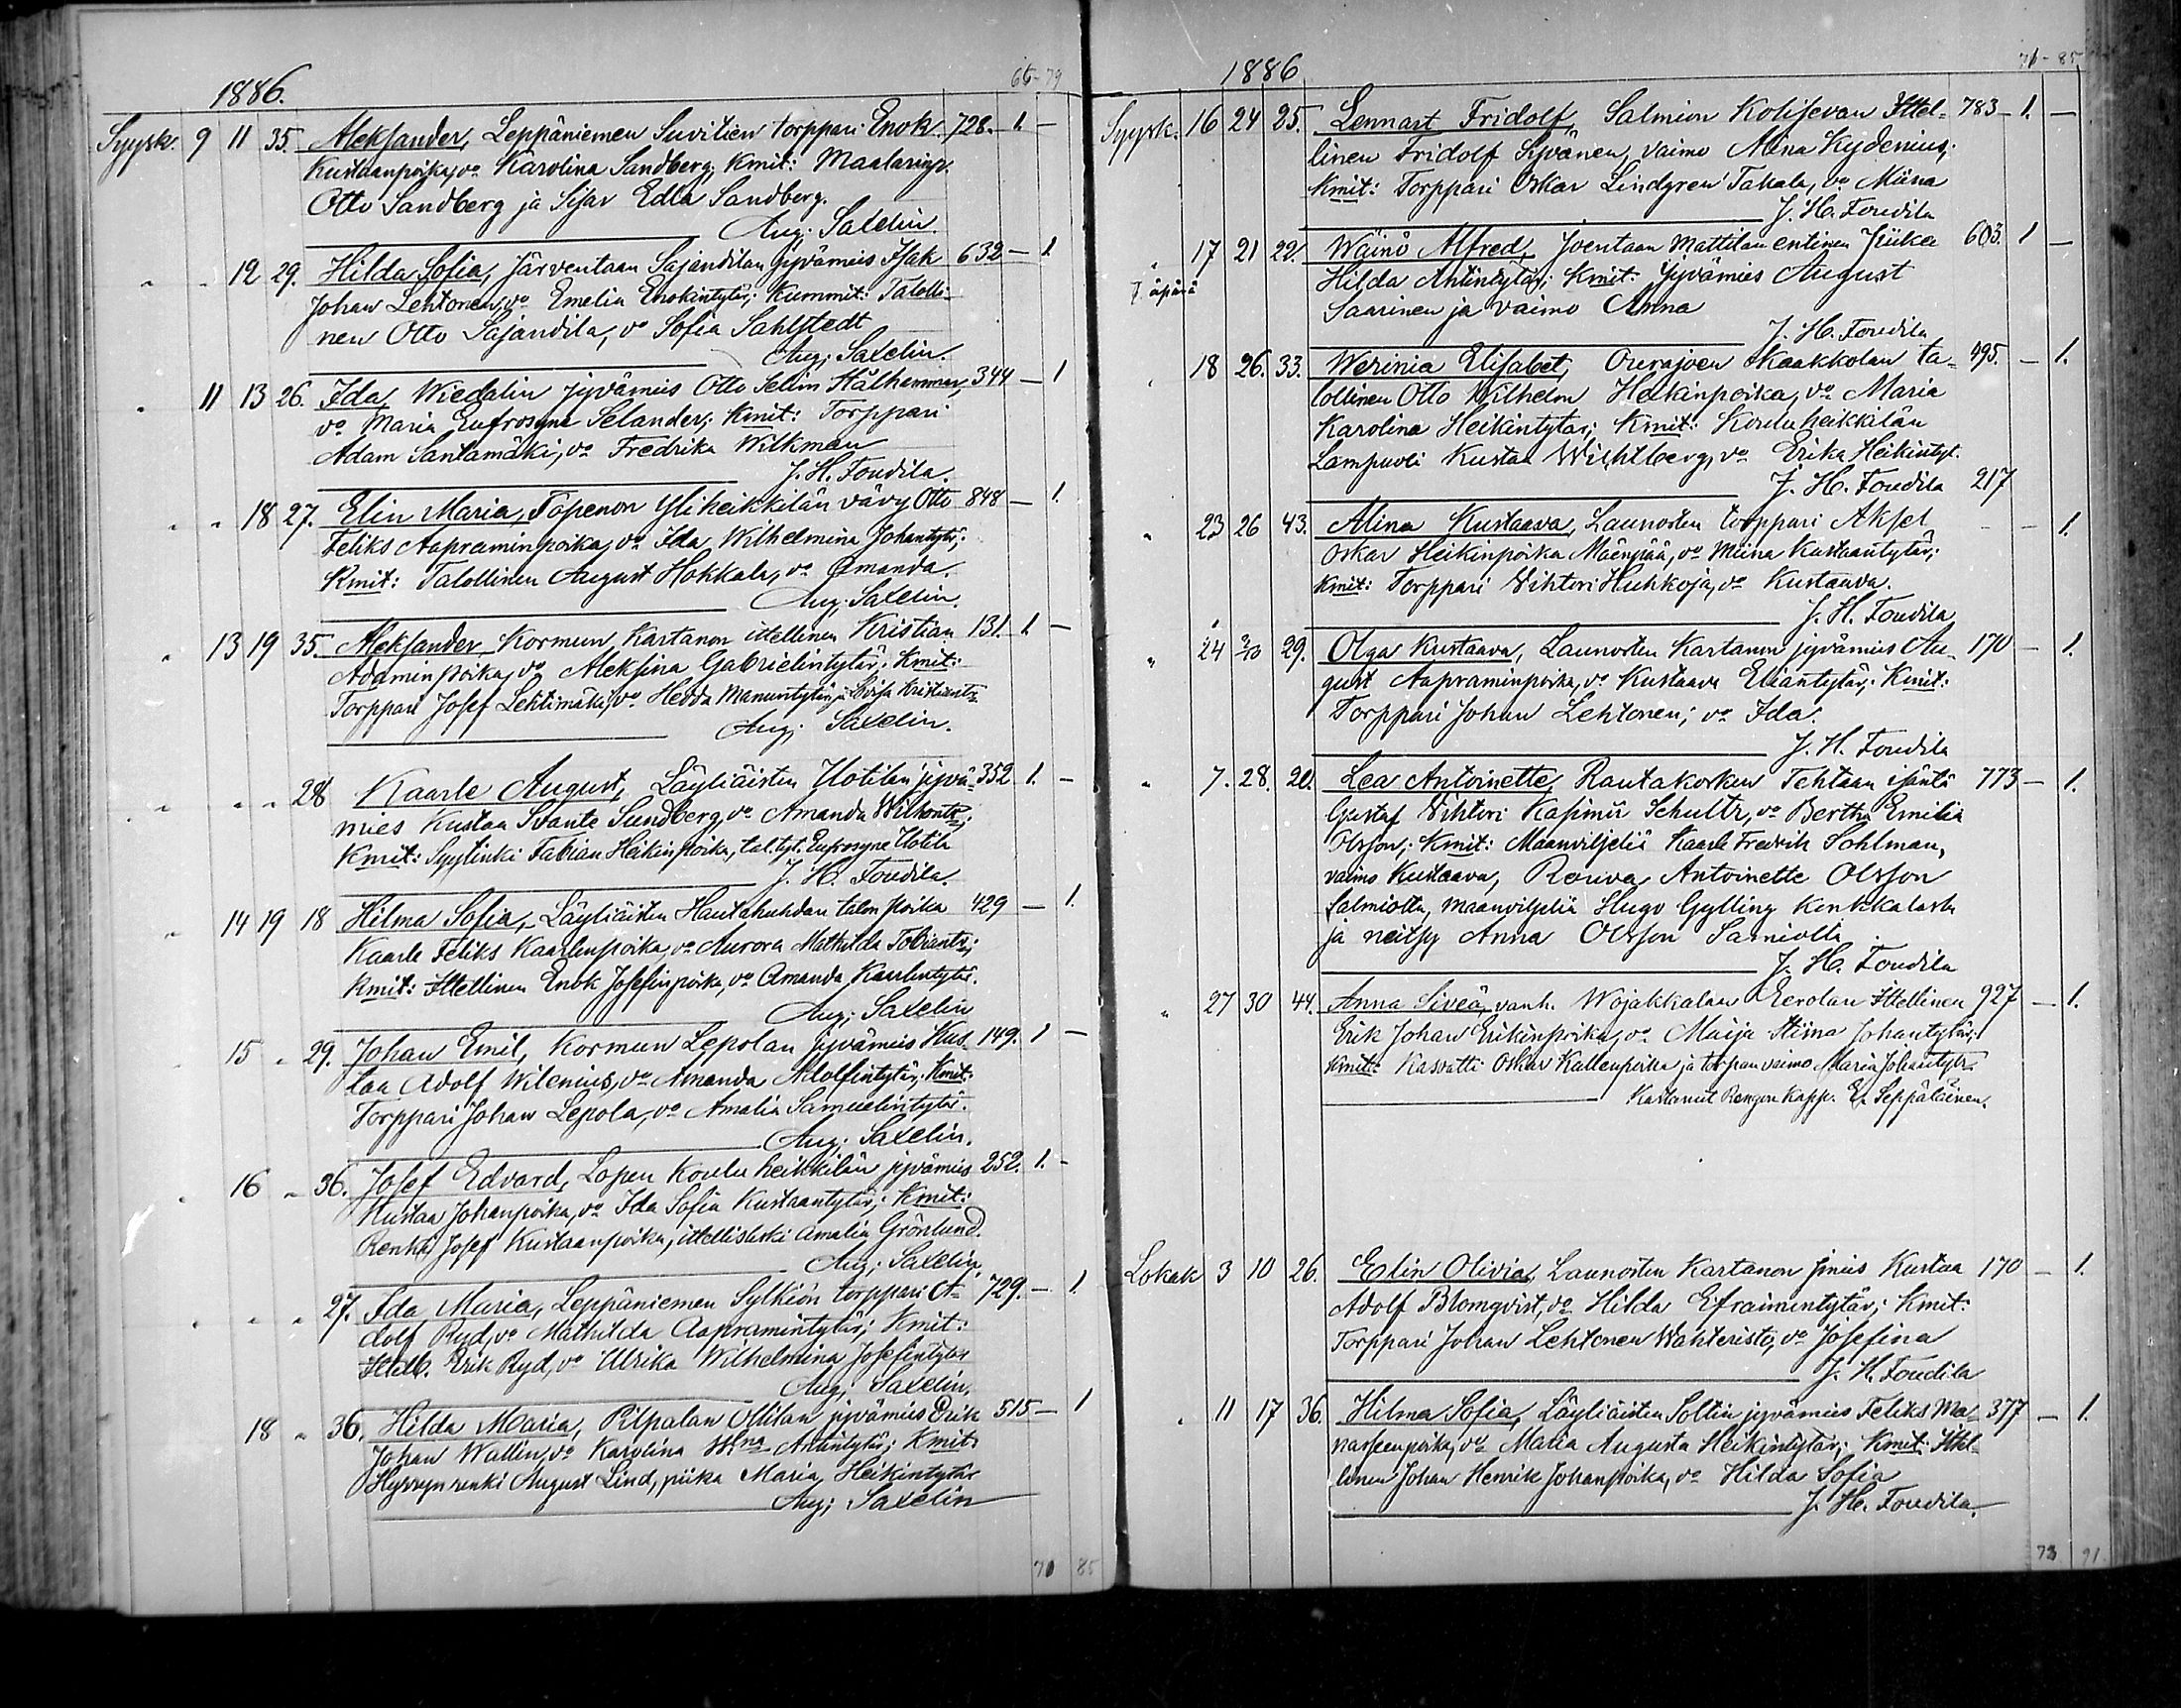 1886.
66-79
Syysk. 9 11 35. Aleksander, Leppäniemen Suvitien torppari Enok 728. 1. —
Kustaanpoika, vo Karolina Sandberg; Kmit: Maalarinp.
Otto Sandberg ja Sisar Edla Sandberg.
Aug. Saxelin.
" " 12 29. Hilda Sofia, Järventaan Sajandilan jyvämies Isak 632 — 1.
Johan Lehtonen, vo Emelia Enokintytär; Kummit: Talolli-
nen Otto Sajandila, vo Sofia Sahlstedt
Aug; Saxelin.
" 11 13 26. Ida, Wiedalin jyvämies Otto Selim Stålhammar, 344 — 1
vo Maria Eufrosyne Selander; Kmit: Torppari
Adam Santamäki, vo Fredrika Wilkman
J. H. Foudila.
" " 18 27. Elin Maria, Topenon Yliheikkilän vävy Otto 848 — 1.
Feliks Aapraminpoika, vo Ida Wilhelmina Johantytär;
Kmit: Talollinen August Hokkala, vo Amanda.
Aug. Saxelin.
" 13 19 35. Aleksander, Kormun Kartanon ittellinen Kristian 131. 1. —
Adaminpoika, vo Aleksina Gabrielintytär; Kmit:
Torppari Josef Lehtimäki, vo Hedda Manuntytär, ja Loisa Kristiantr
Aug; Saxelin.
" " " 28 Kaarle August, Läyliäisten Uotilan jyvä- 352 1. —
mies Kustaa Svante Sundberg, vo Amanda Wilhontr;
Kmit: Syytinki Fabian Heikinpoika, tal. tyt. Eufrosyne Uotila
J. H. Foudila.
" 14 19 18 Hilma Sofia, Läyliäisten Hautahuhdan talon poika 429 — 1.
Kaarle Feliks Kaarlenpoika, vo Aurora Mathilda Tobiantr;
Kmit: Ittellinen Enok Josefinpoika, vo Amanda Kaarlentytär.
Aug; Saxelin
15 " 29. Johan Emil, Kormun Lepolan jyvämies Kus- 149. 1 —
taa Adolf Wilenius, vo Amanda Adolfintytär; Kmit:
Torppari Johan Lepola, vo Amalia Samuelintytär.
Aug; Saxelin.
" 16 " 36. Josef Edvard, Lopen Kouluheikkilän jyvämies 252. 1. -
Kustaa Johanpoika, vo Ida Sofia Kustaantytär; Kmit:
Renki Josef Kustaanpoika, ittellisleski Amalia Grönlund.
Aug; Saxelin
" " " 27. Ida Maria, Leppäniemen Sylkiön torppari A- 729. — 1
dolf Ryd, vo Mathilda Aapramintytär; Kmit:
Ittell. Erik Ryd, vo Ulrika Wilhelmina Josefintytär
Aug; Saxelin.
18 " 36. Hilda Maria, Pilpalan Ollilan jyvämies Erik 515 — 1
Johan Wallin, vo Karolina Wna Antintytär; Kmit:
Hyvvyn renki August Lind, piika Maria Heikintytär
Aug; Saxelin
71 85
1886
71-85
Syysk. 16 24 25. Lennart Fridolf, Salmion Kolisevan Ittel- 783 — 1. —
linen Fridolf Syvänen, vaimo Mina Kydenius;
Kmit: Torppari Oskar Lindgren Takala, vo Miina
J. H. Foudila
" 17 21 22. Wäinö Alfred, Joentaan Mattilan entinen piika 603. 1 —
äpärä Hilda Antintytär; Kmit: Jyvämies August
Saarinen ja vaimo Anna
J. H. Foudila
" 18 26. 33. Werinia Elisabet, Ourajoen Kaakkolan ta- 495. — 1.
lollinen Otto Wilhelm Heikinpoika, vo Maria
Karolina Heikintytär; Kmit: Kouluheikkilän
Lampuoti Kustaa Wichtberg, vo Erika Heikintyt.
J. H. Foudila 217
" 23 26 43. Alina Kustaava, Launosten torppari Aksel — 1.
Oskar Heikinpoika Mäenpää, vo Miina Kustaantytär;
Kmit: Torppari Vihtori Huhkoja, vo Kustaava.
J. H. Foudila
" 24 3/10 29. Olga Kustaava, Launosten Kartanon jyvämies Au- 170 — 1.
gust Aapraminpoika, vo Kustaava Eliantytär; Kmit:
Torppari Johan Lehtonen; vo Ida.
J. H. Foudila
" 7. 28. 20. Lea Antoinette, Rautakosken Tehtaan isäntä 773 — 1.
Gustaf Vihtori Kasimir Schultz, vo Bertha Emilia
Olsson; Kmit: Maanviljeliä Kaarle Fredrik Sohlman,
vaimo Kustaava, Rouva Antoinette Olsson
Salmiolta, maanviljeliä Hugo Gylling
ja neitsy Anna Olsson Samiolta.
J. H. Foudila
" 27 30 44. Anna Siveä, vanh. Wojakkalan Eerolan Ittellinen 927 — 1.
Erik Johan Erikinpoika, vo Maija Stiina Johantytär;
Kmit: Kasvatti Oskar Kallenpoika ja torpan vaimo Maria Johantytär
Kastanut Rengon Kapp. E. Seppäläinen.
Lokak 3 10 26. Elin Olivia, Launosten Kartanon jmies Kustaa 170 — 1.
Adolf Blomqvist, vo Hilda Efraimintytär; Kmit:
Torppari Johan Lehtonen Wahteristo, vo Josefina
J. H. Foudila
" 11 17 36. Hilma Sofia, Läyliäisten Soltin jyvämies Feliks Ma- 377 — 1.
nasseenpoika, vo Maria Augusta Heikintytär; Kmit: Ittel-
linen Johan Henrik Johanpoika, vo Hilda Sofia
J. H. Foudila.
73 91